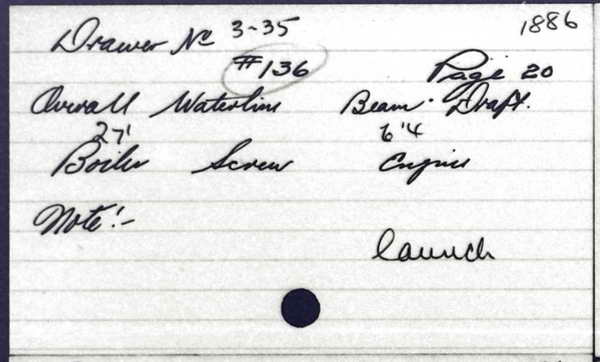 1886
Drawer No 3-35
#136
Page 20
Overall Waterline Beam. Draft.
27' 6'4
Boiler Screw Engine
Note!-
launch